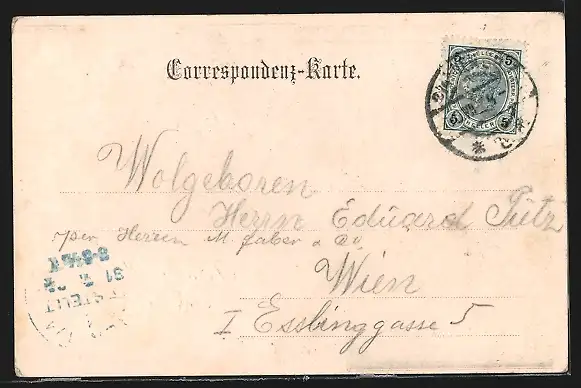 Correspondenz-Karte.
5 5
HELLER
5 5
Wolgeboren
Herrn Eduard Pütz
per Herren M. Faber & Co.
Wien
I Esslinggasse 5